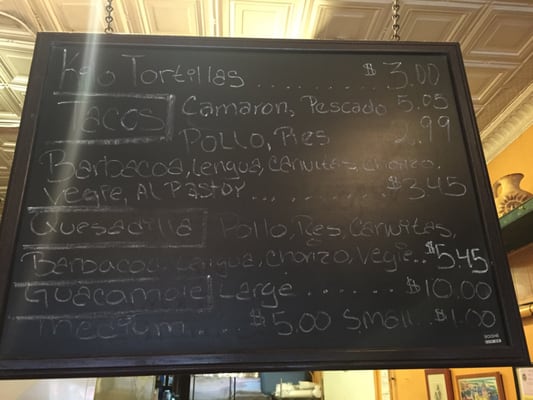 Kilo Tortillas .......... $3.00
Tacos Camaron, Pescado 5.05
Pollo, Res 2.99
Barbacoa, Lengua, Carnitas, Chorizo,
Vegie, Al Pastor ........ $3.45
Quesadilla Pollo, Res, Carnitas,
Barbacoa, Lengua, Chorizo, Vegie.. $5.45
Guacamole Large ....... $10.00
medium..... $5.00 Small.. $1.00